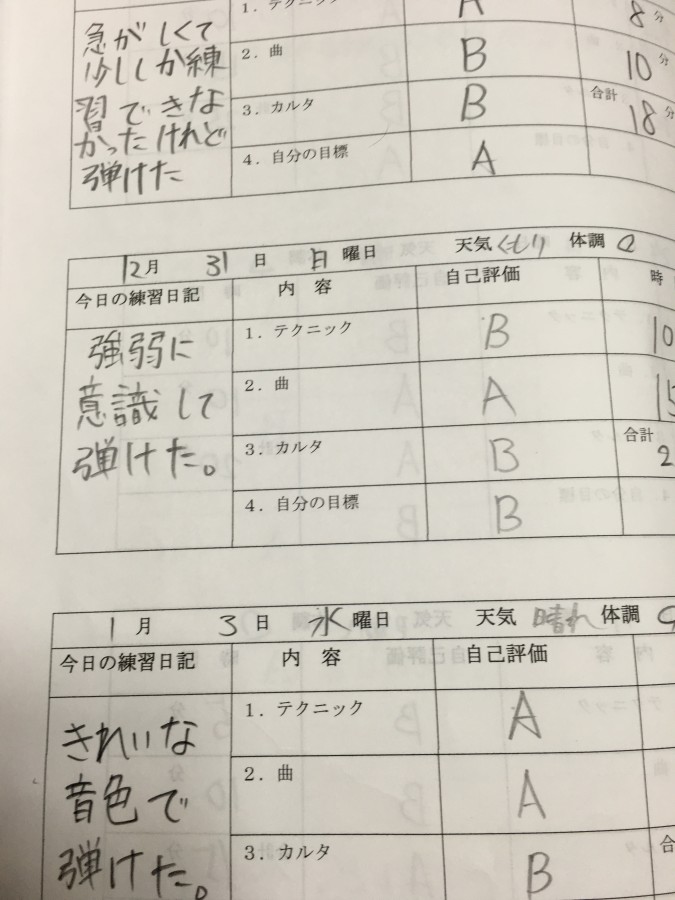 1. テクニック A 8分
急がしくて
少ししか練
習できな
かったけれど
弾けた
2. 曲 B 10分
3. カルタ B 合計 18分
4. 自分の目標 A
12月 31日 日曜日 天気 くもり 体調
今日の練習日記 内 容 自己評価 時
強弱に
意識して
弾けた。
1. テクニック B 10
2. 曲 A 15
3. カルタ B 合計 2
4. 自分の目標 B
1月 3日 水曜日 天気 晴れ 体調
今日の練習日記 内 容 自己評価
きれいな
音色で
弾けた。
1. テクニック A
2. 曲 A
3. カルタ B 合